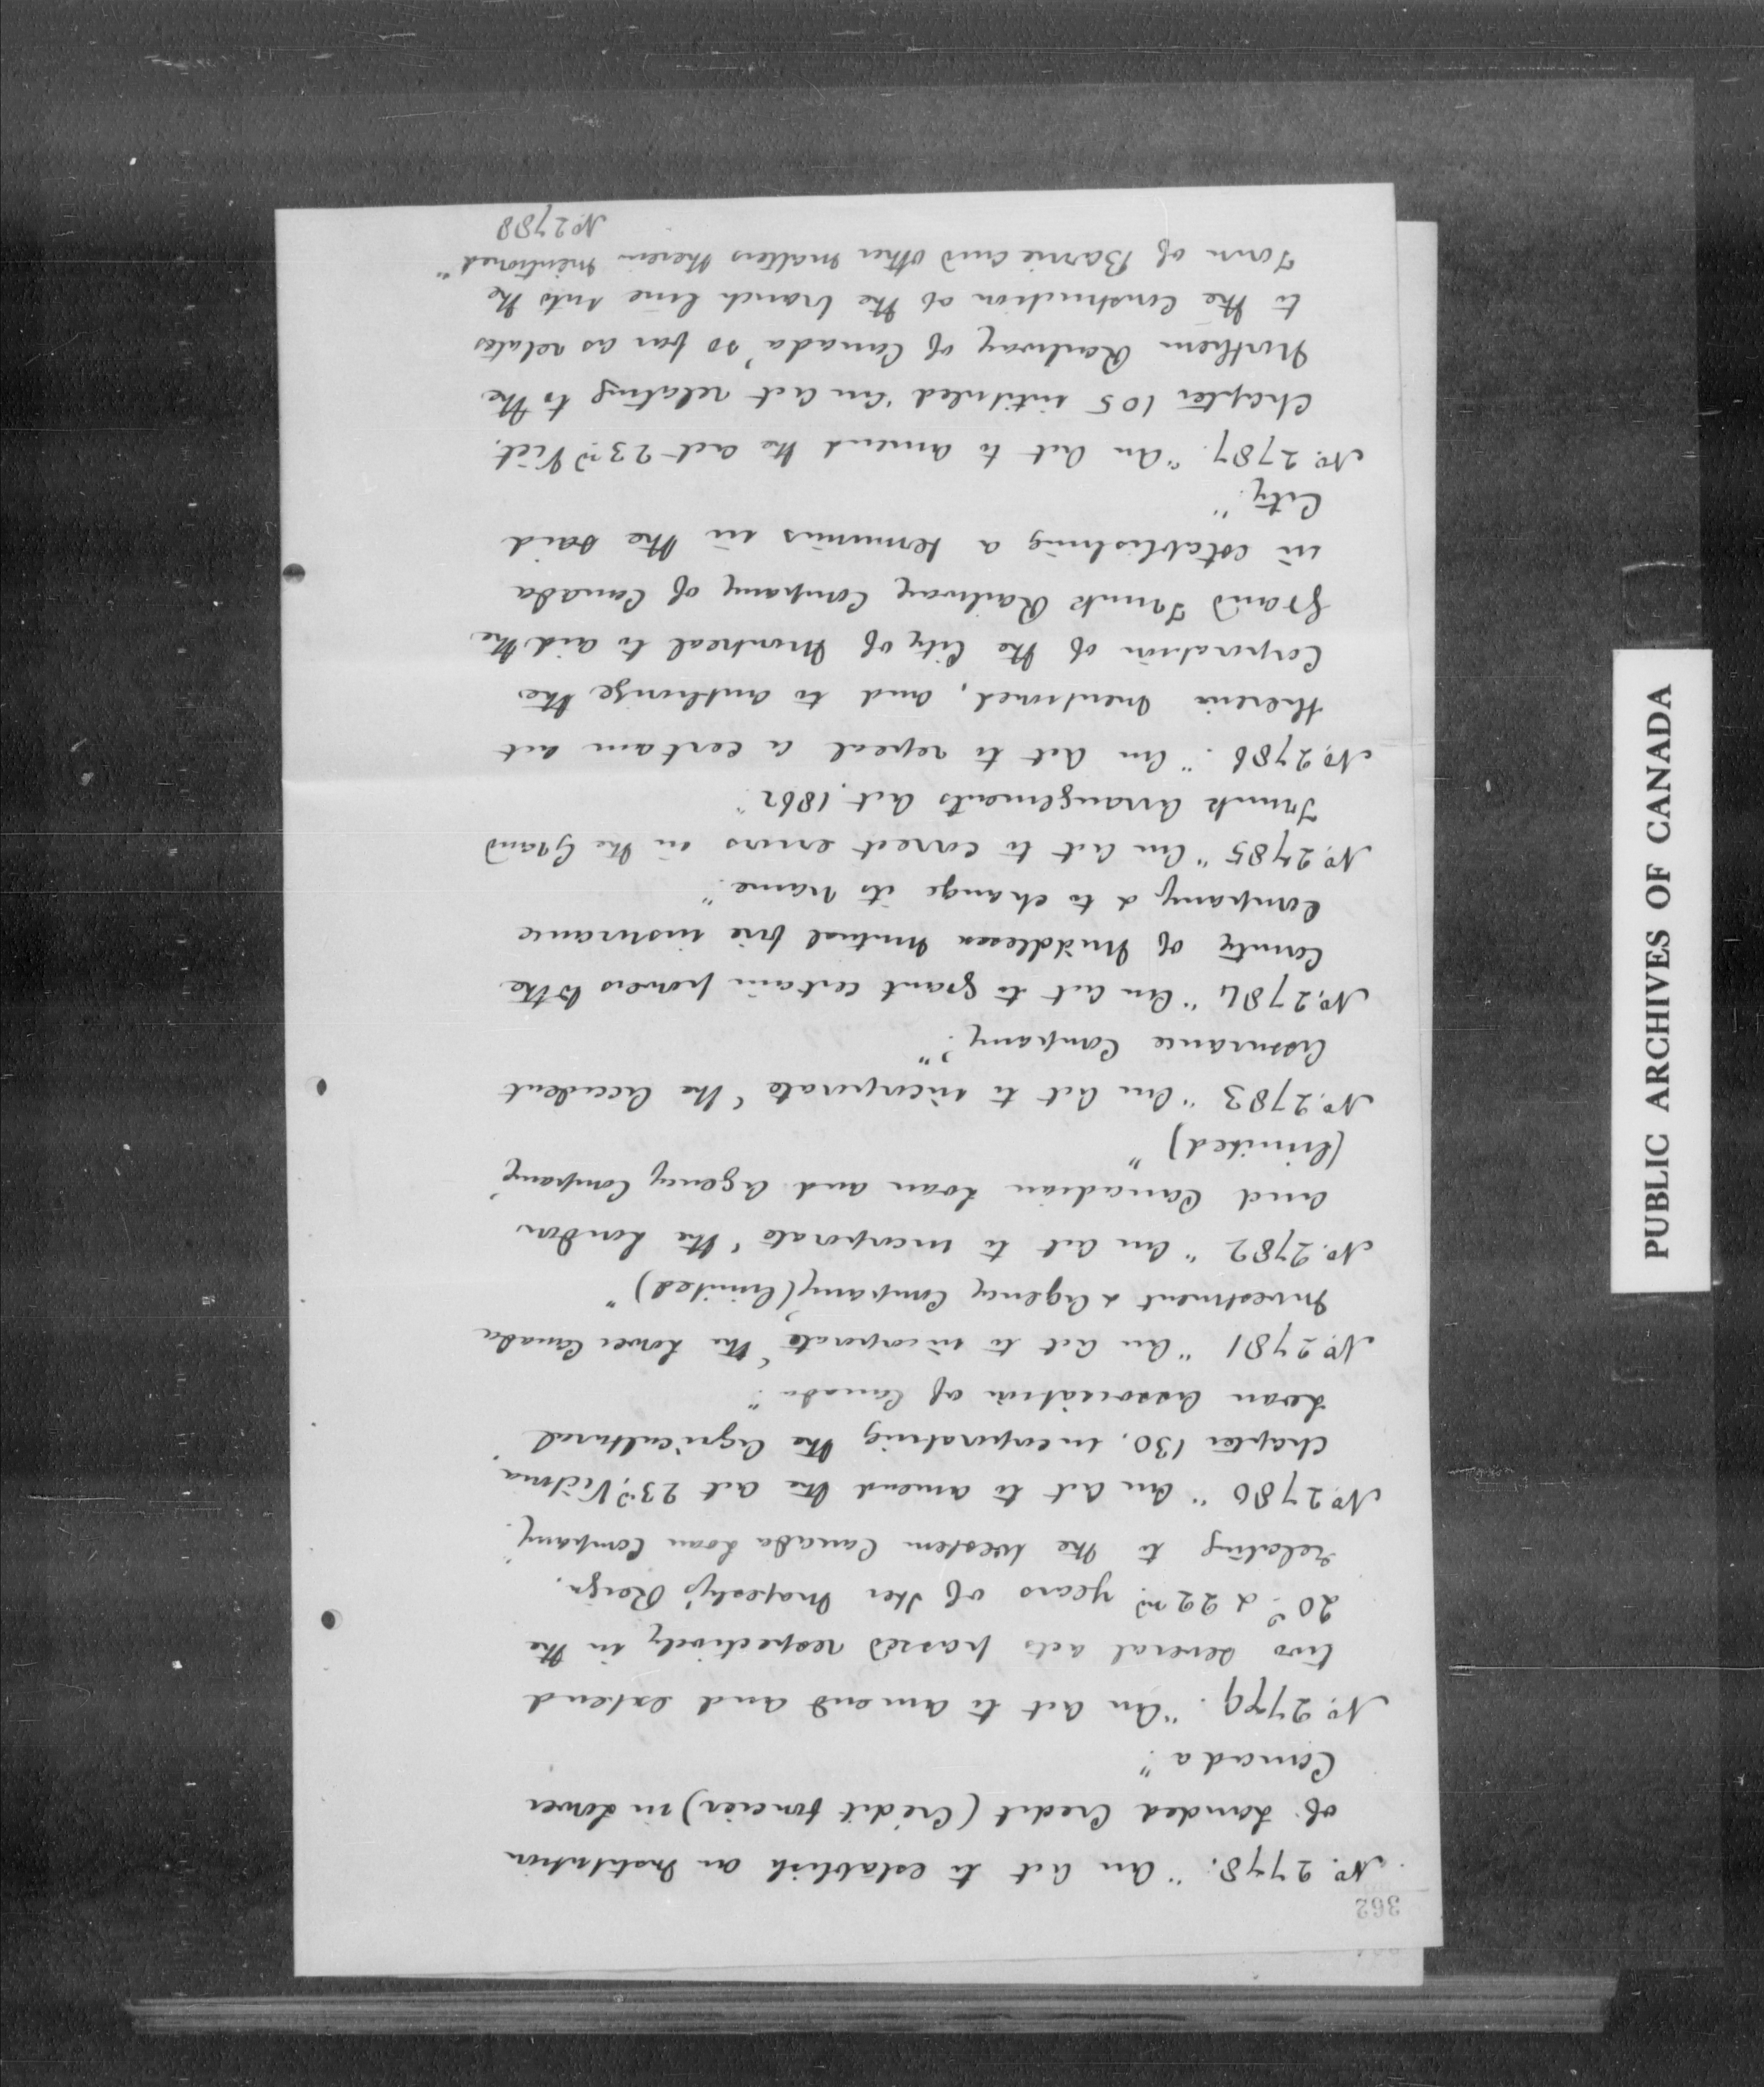 362
No. 2778. "An Act to establish an Institution
of Landed Credit (Crédit foncier) in Lower
Canada"
No. 2779. "An Act to amend and extend
two several acts passed respectively in the
20th & 22nd years of Her Majesty's Reign,
relating to the Western Canada Loan Company."
No. 2780 "An Act to amend the act 23rd Victoria,
chapter 130, incorporating the Agricultural
Loan Association of Canada."
No. 2781 "An Act to incorporate 'the Lower Canada
Investment & Agency Company' (Limited)"
No. 2782 "An Act to incorporate 'the London
and Canadian Loan and Agency Company'
(Limited)"
No. 2783 "An Act to incorporate 'the Accident
Assurance Company'."
No. 2784 "An Act to grant certain powers to the
County of Middlesex Mutual fire insurance
Company & to change its name."
No. 2785 "An Act to correct errors in the Grand
Trunk Arrangements Act, 1862"
No. 2786. "An Act to repeal a certain act
therein mentioned, and to authorize the
Corporation of the City of Montreal to aid the
Grand Trunk Railway Company of Canada
in establishing a terminus in the said
City."
No. 2787. "An Act to amend the act 23rd Vict.
chapter 105 intituled 'An act relating to the
Northern Railway of Canada' so far as relates
to the construction of the branch line into the
Town of Barrie and other matters therein mentioned"
No. 2788
PUBLIC ARCHIVES OF CANADA